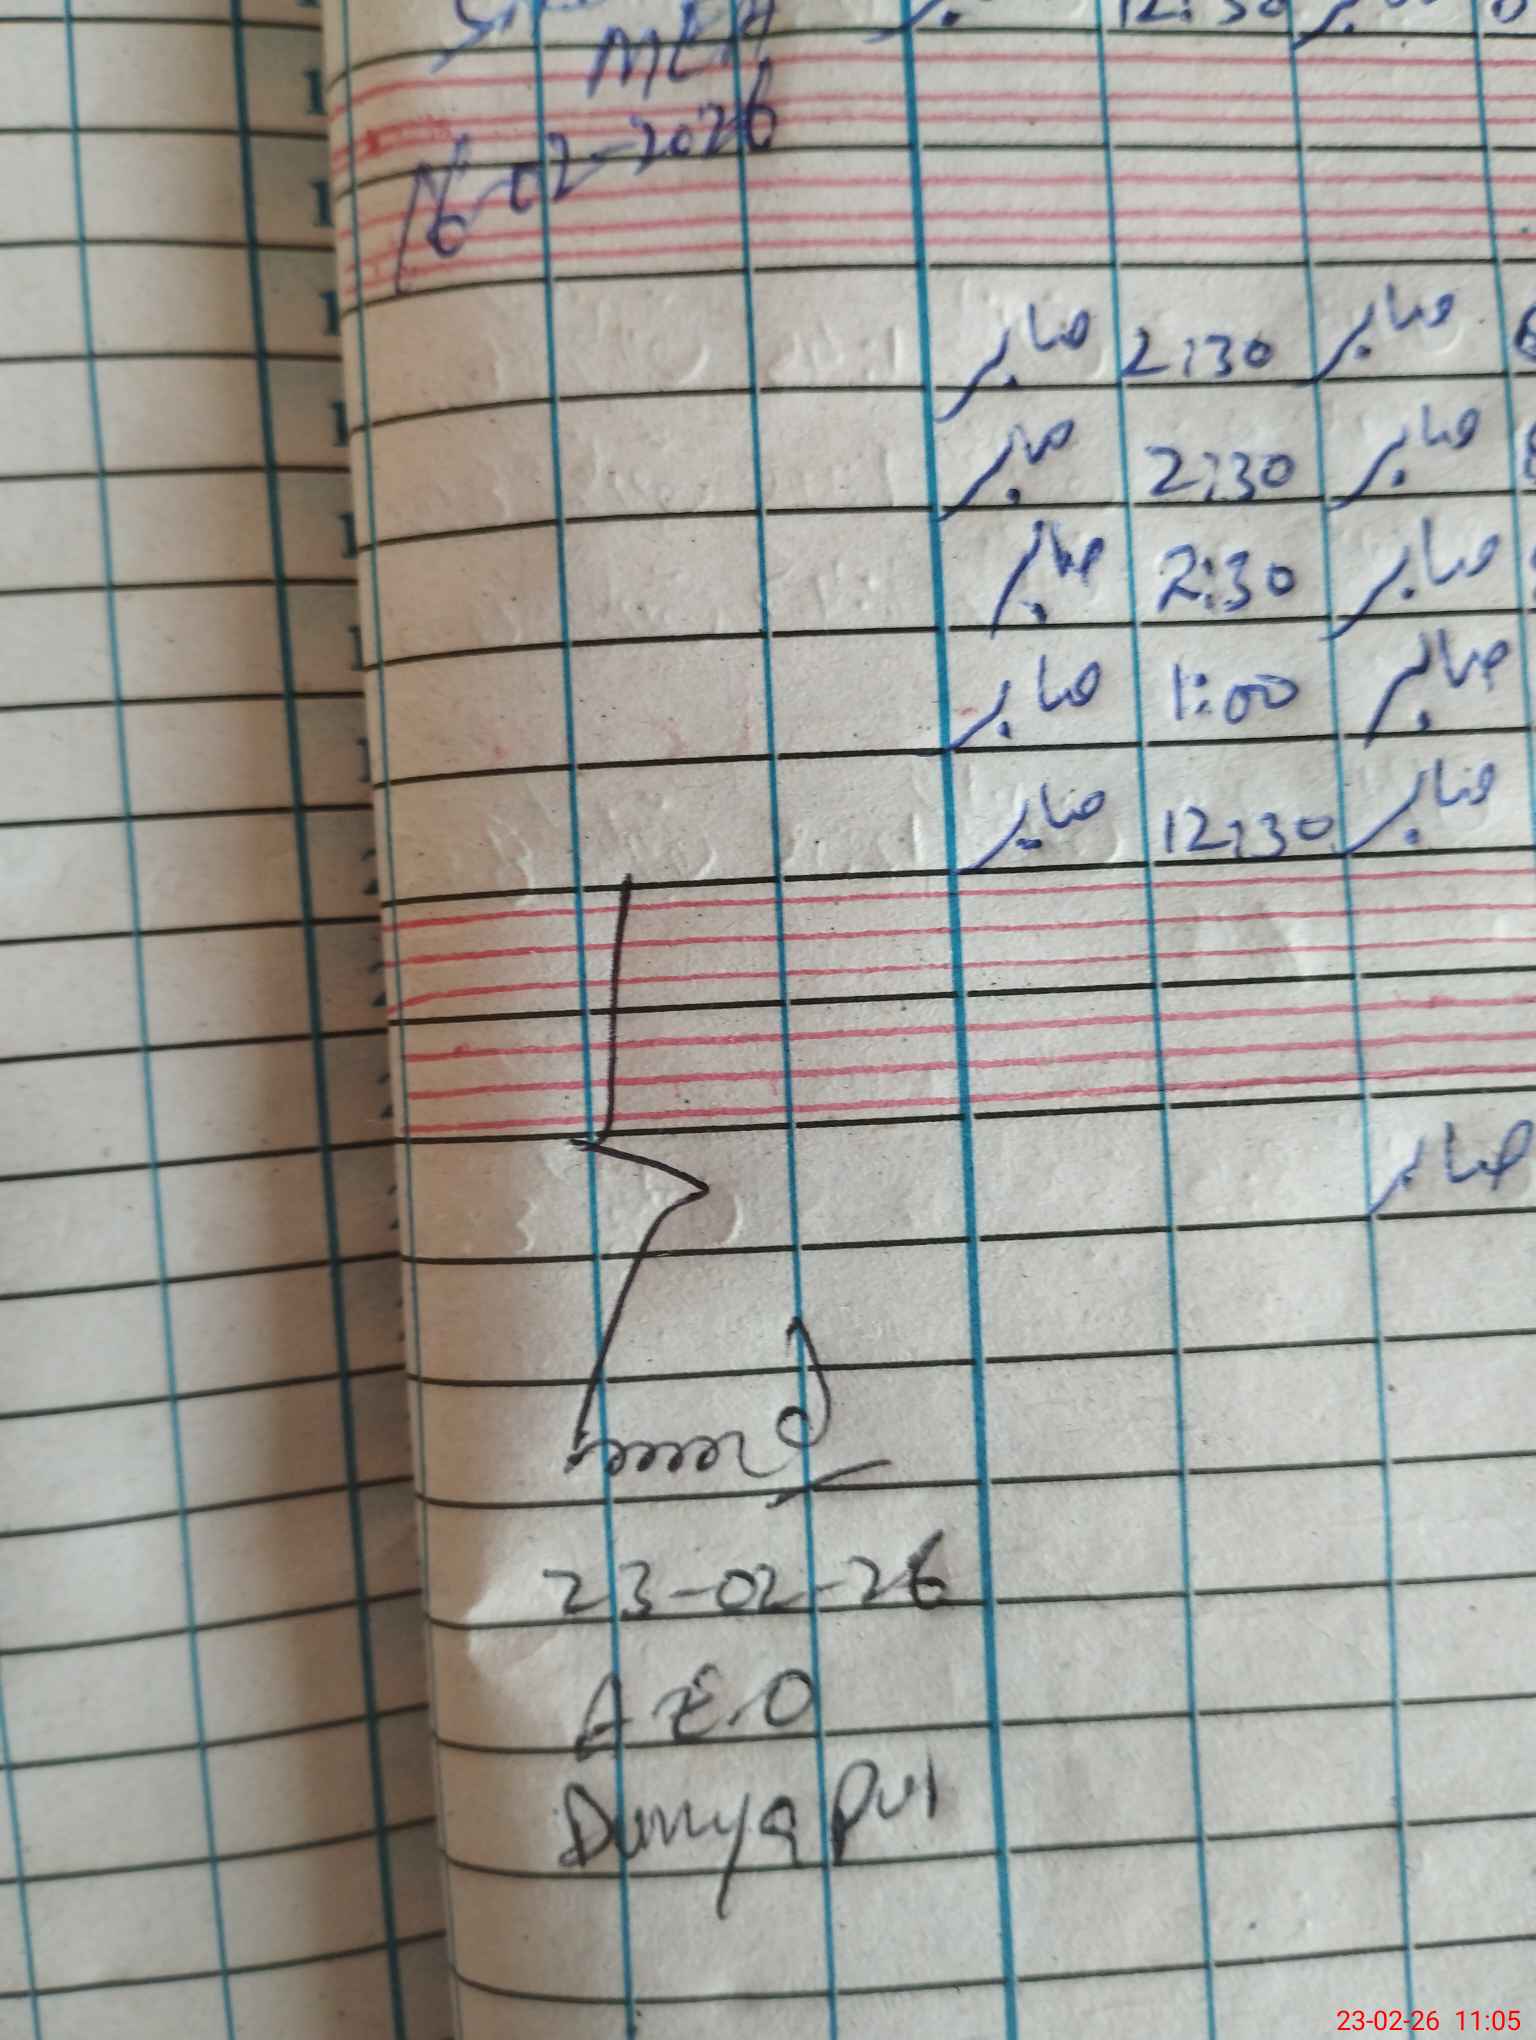 12:30
MEA
16-02-2026
صابر 2:30 صابر
صابر 2:30 صابر
صابر 2:30 صابر
صابر 1:00 صابر
صابر 12:30 صابر
صابر
23-02-26
A.E.O
Dunya Pur
23-02-26 11:05